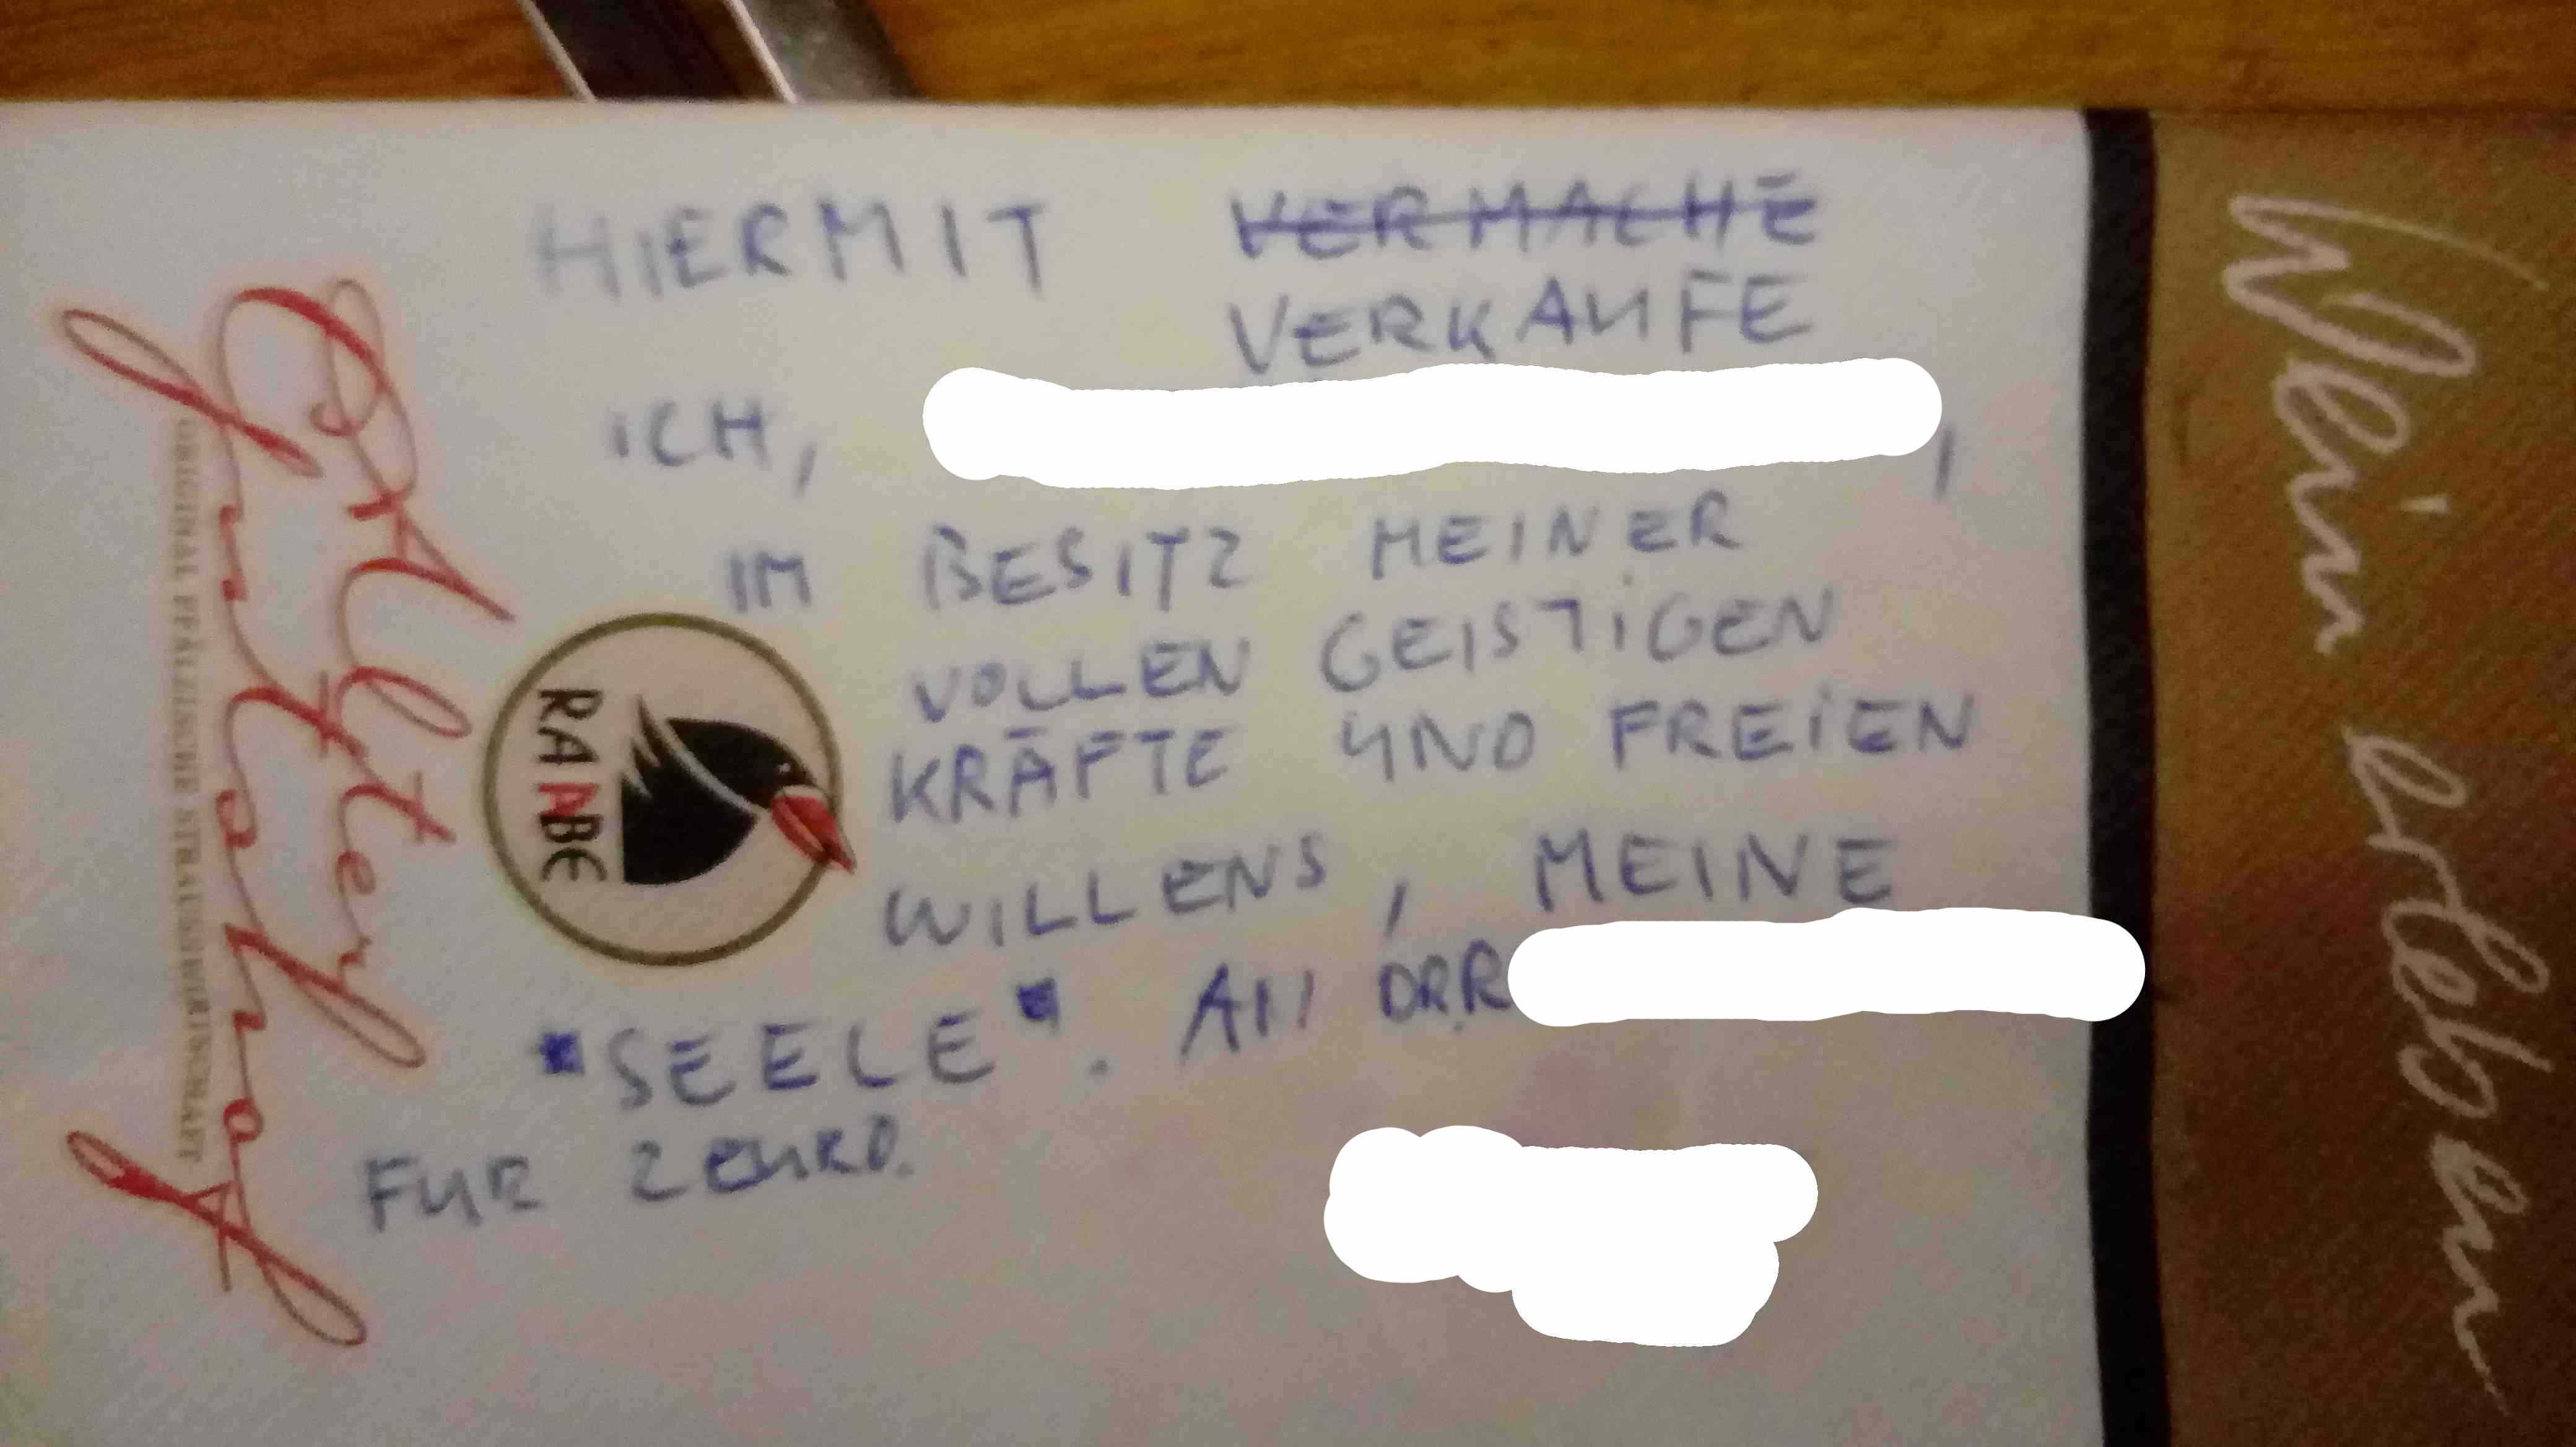 HIERMIT VERMACHE
VERKAUFE
ICH,
,
IM BESITZ MEINER
VOLLEN GEISTIGEN
KRÄFTE UND FREIEN
WILLENS, MEINE
"SEELE". AN DR.R
FUR 2 EURO.
Alter
ORIGINAL PFÄLZISCHE STRAUSSWIRTSCHAFT
RABE
Wein erleben